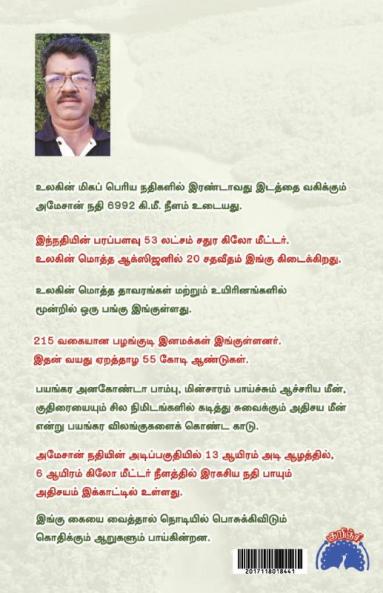 உலகின் மிகப் பெரிய நதிகளில் இரண்டாவது இடத்தை வகிக்கும்
அமேசான் நதி 6992 கி.மீ. நீளம் உடையது.
இந்நதியின் பரப்பளவு 53 லட்சம் சதுர கிலோ மீட்டர்.
உலகின் மொத்த ஆக்ஸிஜனில் 20 சதவீதம் இங்கு கிடைக்கிறது.
உலகின் மொத்த தாவரங்கள் மற்றும் உயிரினங்களில்
மூன்றில் ஒரு பங்கு இங்குள்ளது.
215 வகையான பழங்குடி இனமக்கள் இங்குள்ளனர்.
இதன் வயது ஏறத்தாழ 55 கோடி ஆண்டுகள்.
பயங்கர அனகோண்டா பாம்பு, மின்சாரம் பாய்ச்சும் ஆச்சரிய மீன்,
குதிரையையும் சில நிமிடங்களில் கடித்து சுவைக்கும் அதிசய மீன்
என்று பயங்கர விலங்குகளைக் கொண்ட காடு.
அமேசான் நதியின் அடிப்பகுதியில் 13 ஆயிரம் அடி ஆழத்தில்,
6 ஆயிரம் கிலோ மீட்டர் நீளத்தில் இரகசிய நதி பாயும்
அதிசயம் இக்காட்டில் உள்ளது.
இங்கு கையை வைத்தால் நொடியில் பொசுக்கிவிடும்
கொதிக்கும் ஆறுகளும் பாய்கின்றன.
குறிஞ்சி
2017118018441